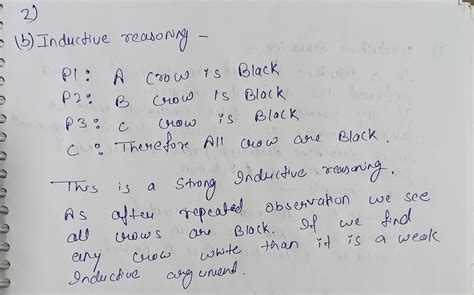 2)
(b) Inductive reasoning -
P1: A Crow is Black
P2: B Crow is Black
P3: C Crow is Black
C : Therefore All crow are Black.
This is a Strong Inductive reasoning.
As after repeated observation we see
all crows are Black. If we find
any crow white than it is a weak
Inductive argument.